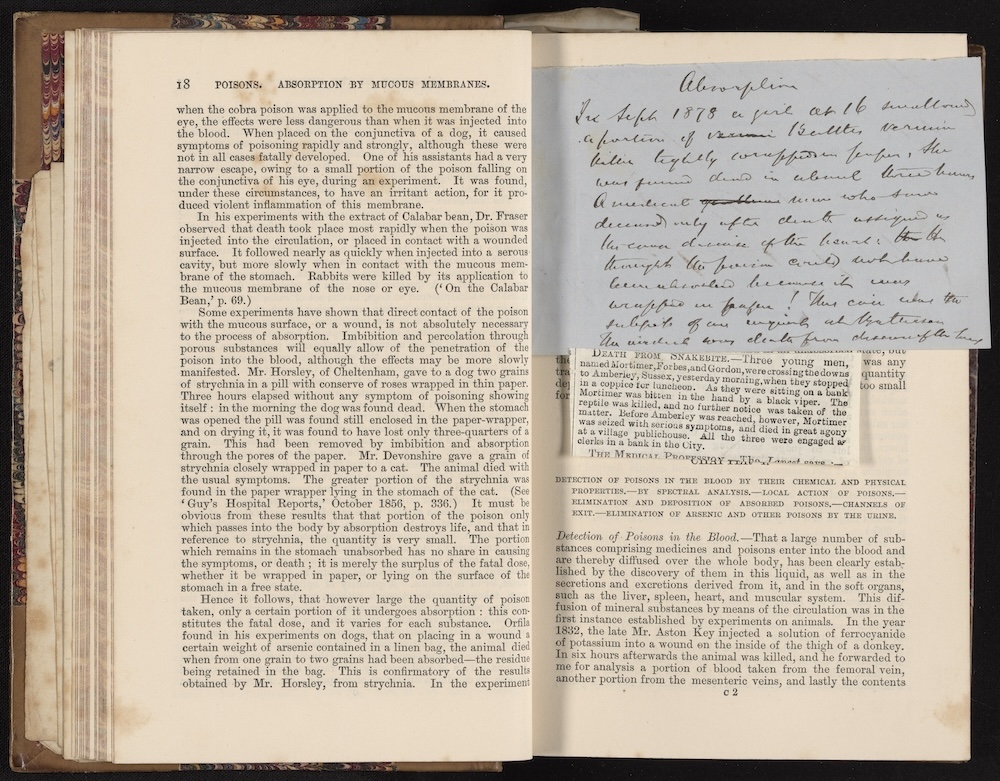 18 POISONS. ABSORPTION BY MUCOUS MEMBRANES.
when the cobra poison was applied to the mucous membrane of the
eye, the effects were less dangerous than when it was injected into
the blood. When placed on the conjunctiva of a dog, it caused
symptoms of poisoning rapidly and strongly, although these were
not in all cases fatally developed. One of his assistants had a very
narrow escape, owing to a small portion of the poison falling on
the conjunctiva of his eye, during an experiment. It was found,
under these circumstances, to have an irritant action, for it pro-
duced violent inflammation of this membrane.
In his experiments with the extract of Calabar bean, Dr. Fraser
observed that death took place most rapidly when the poison was
injected into the circulation, or placed in contact with a wounded
surface. It followed nearly as quickly when injected into a serous
cavity, but more slowly when in contact with the mucous mem-
brane of the stomach. Rabbits were killed by its application to
the mucous membrane of the nose or eye. ('On the Calabar
Bean,' p. 69.)
Some experiments have shown that direct contact of the poison
with the mucous surface, or a wound, is not absolutely necessary
to the process of absorption. Imbibition and percolation through
porous substances will equally allow of the penetration of the
poison into the blood, although the effects may be more slowly
manifested. Mr. Horsley, of Cheltenham, gave to a dog two grains
of strychnia in a pill with conserve of roses wrapped in thin paper.
Three hours elapsed without any symptom of poisoning showing
itself : in the morning the dog was found dead. When the stomach
was opened the pill was found still enclosed in the paper-wrapper,
and on drying it, it was found to have lost only three-quarters of a
grain. This had been removed by imbibition and absorption
through the pores of the paper. Mr. Devonshire gave a grain of
strychnia closely wrapped in paper to a cat. The animal died with
the usual symptoms. The greater portion of the strychnia was
found in the paper wrapper lying in the stomach of the cat. (See
'Guy's Hospital Reports,' October 1856, p. 336.) It must be
obvious from these results that that portion of the poison only
which passes into the body by absorption destroys life, and that in
reference to strychnia, the quantity is very small. The portion
which remains in the stomach unabsorbed has no share in causing
the symptoms, or death ; it is merely the surplus of the fatal dose,
whether it be wrapped in paper, or lying on the surface of the
stomach in a free state.
Hence it follows, that however large the quantity of poison
taken, only a certain portion of it undergoes absorption : this con-
stitutes the fatal dose, and it varies for each substance. Orfila
found in his experiments on dogs, that on placing in a wound a
certain weight of arsenic contained in a linen bag, the animal died
when from one grain to two grains had been absorbed—the residue
being retained in the bag. This is confirmatory of the results
obtained by Mr. Horsley, from strychnia. In the experiment
Absorption
In Sept 1878 a girl at 16 swallowed
a portion of Battles vermin
killer tightly wrapped in paper, She
was found dead in about three hours
A medical man who saw
deceased only after death assigned as
the cause disease of the heart:
thought the poison could not have
been absorbed because it was
wrapped in paper! This case was the
subject of an inquest at Battersea
the verdict was death from disease of the heart
state, but
was any
quantity
too small
DEATH FROM SNAKEBITE.—Three young men,
named Mortimer, Forbes, and Gordon, were crossing the downs
to Amberley, Sussex, yesterday morning, when they stopped
in a coppice for luncheon. As they were sitting on a bank
Mortimer was bitten in the hand by a black viper. The
reptile was killed, and no further notice was taken of the
matter. Before Amberley was reached, however, Mortimer
was seized with serious symptoms, and died in great agony
at a village publichouse. All the three were engaged as
clerks in a bank in the City.
THE MEDICAL PROFESSION.—The Lancet says :—
DETECTION OF POISONS IN THE BLOOD BY THEIR CHEMICAL AND PHYSICAL
PROPERTIES.—BY SPECTRAL ANALYSIS.—LOCAL ACTION OF POISONS.—
ELIMINATION AND DEPOSITION OF ABSORBED POISONS.—CHANNELS OF
EXIT.—ELIMINATION OF ARSENIC AND OTHER POISONS BY THE URINE.
Detection of Poisons in the Blood.—That a large number of sub-
stances comprising medicines and poisons enter into the blood and
are thereby diffused over the whole body, has been clearly estab-
lished by the discovery of them in this liquid, as well as in the
secretions and excretions derived from it, and in the soft organs,
such as the liver, spleen, heart, and muscular system. This dif-
fusion of mineral substances by means of the circulation was in the
first instance established by experiments on animals. In the year
1832, the late Mr. Aston Key injected a solution of ferrocyanide
of potassium into a wound on the inside of the thigh of a donkey.
In six hours afterwards the animal was killed, and he forwarded to
me for analysis a portion of blood taken from the femoral vein,
another portion from the mesenteric veins, and lastly the contents
c 2